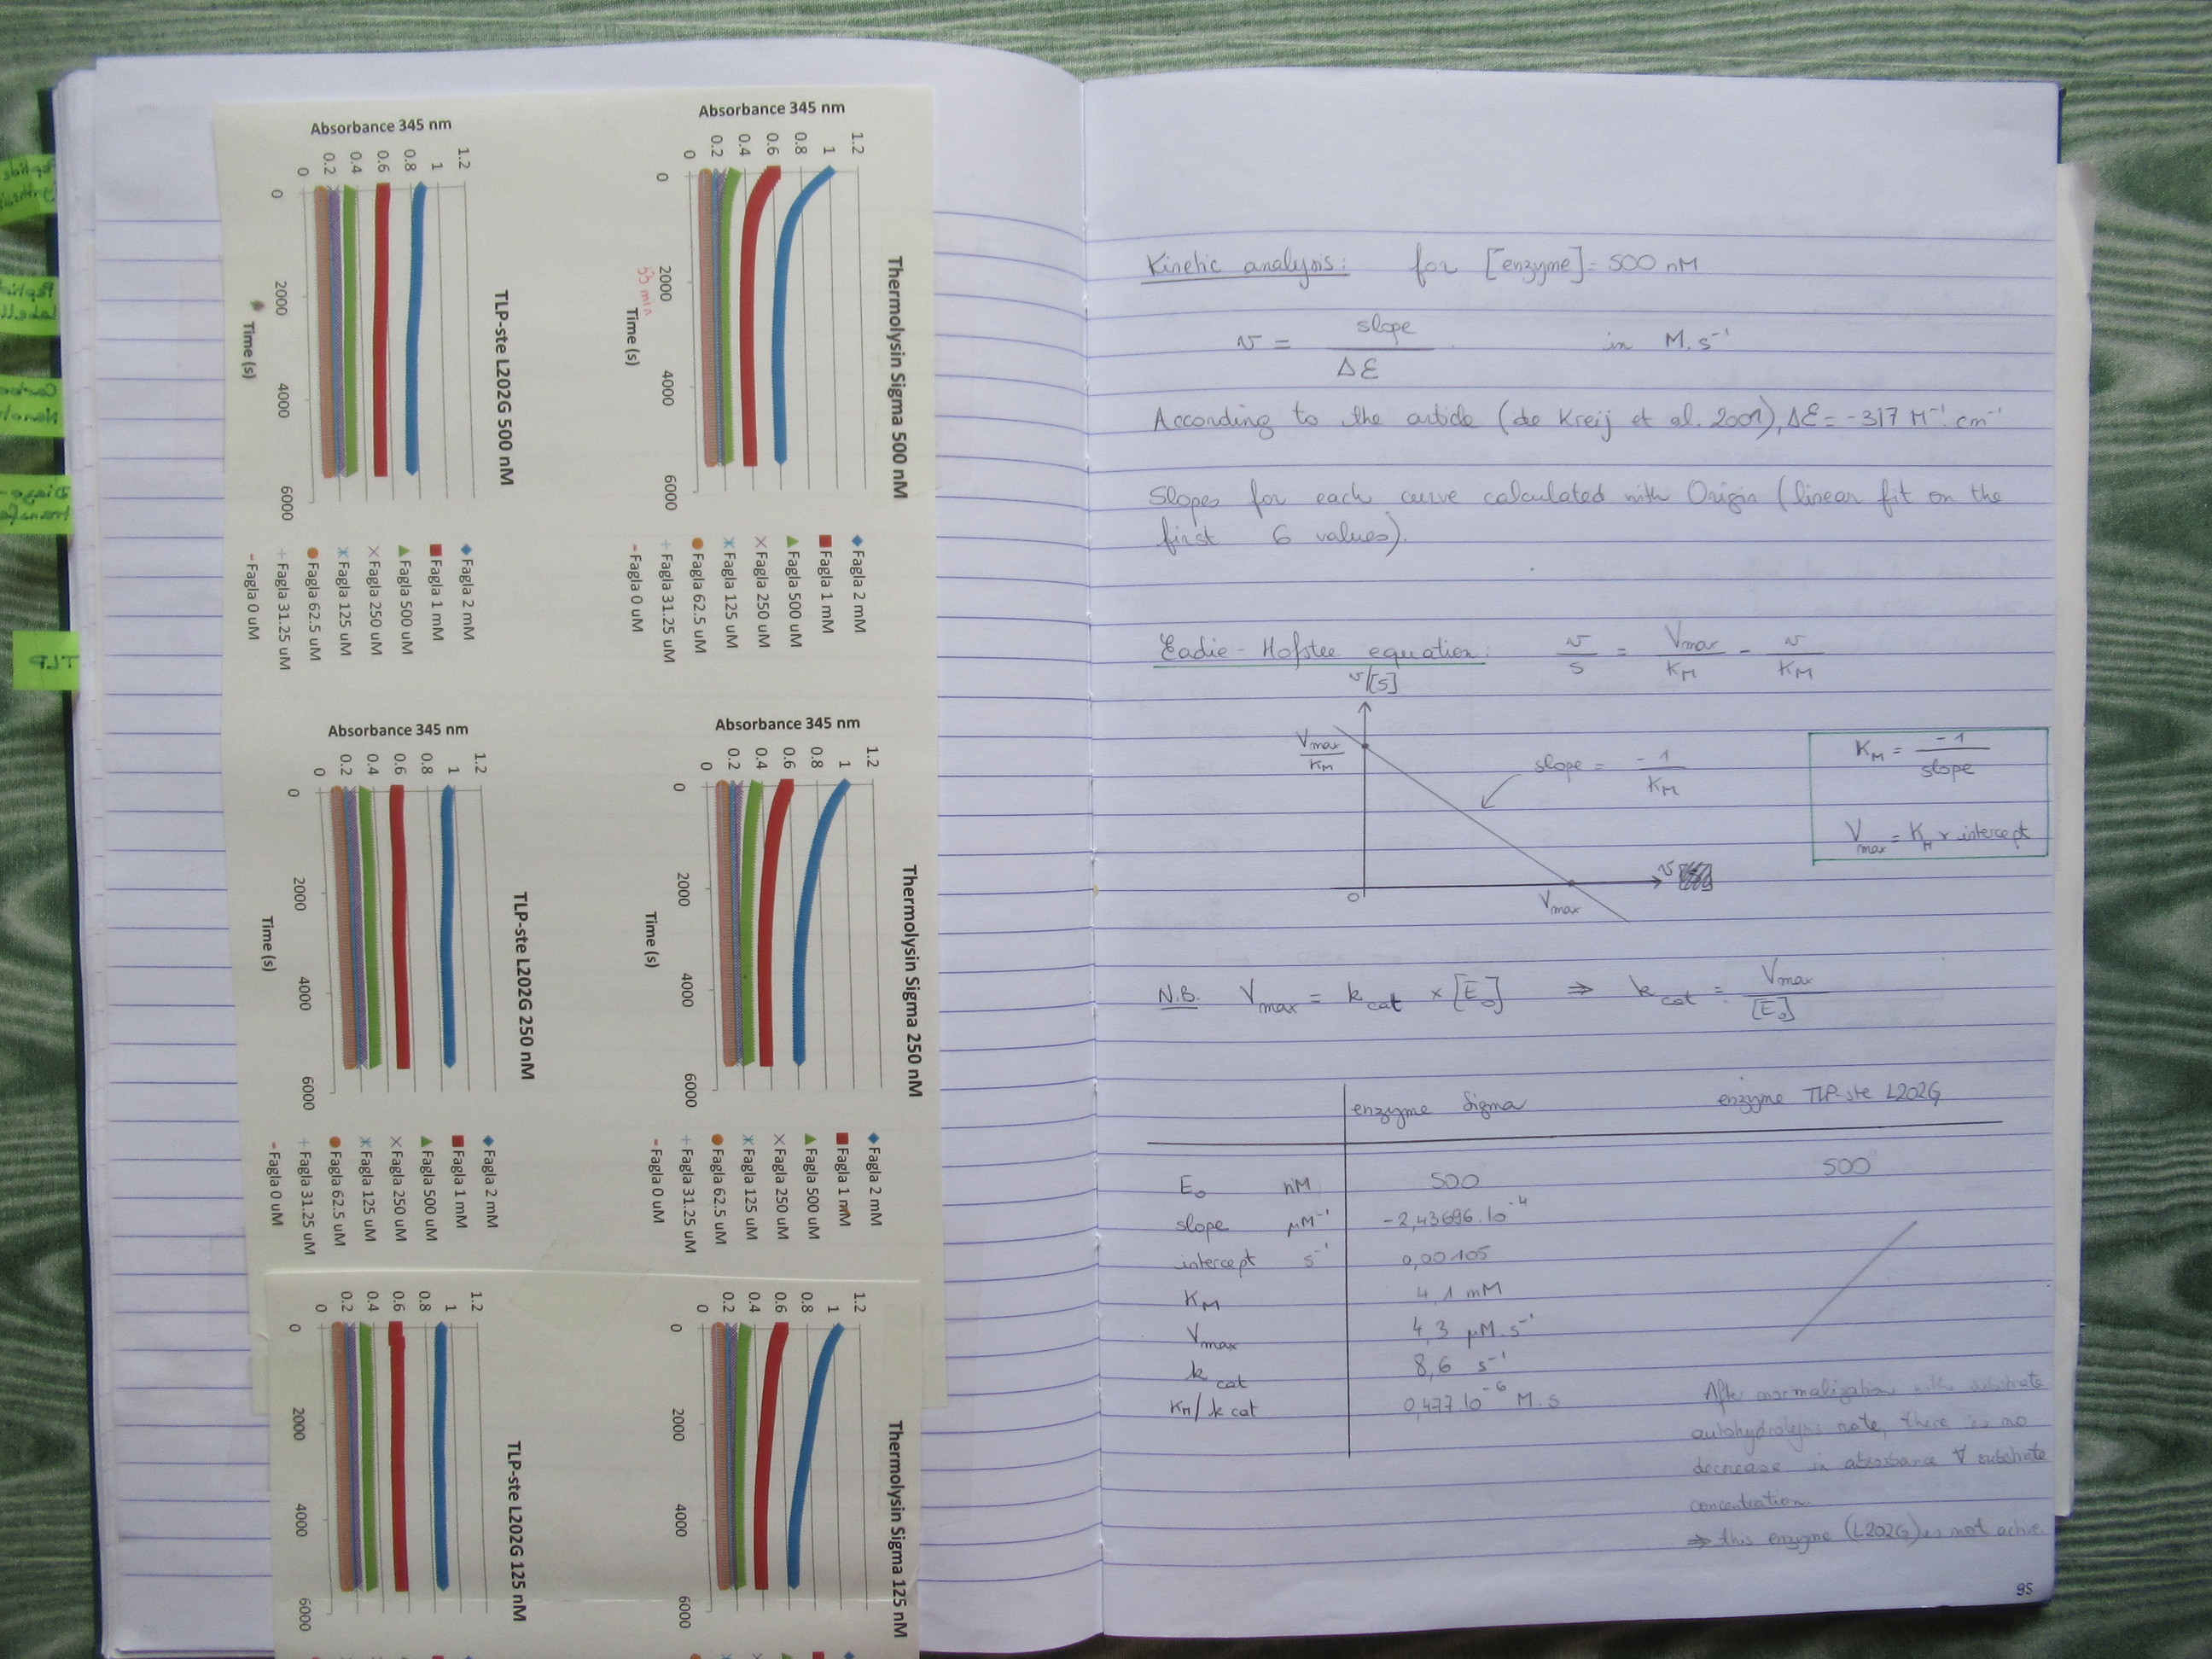 Peptide
Peptide
Labell
Carbo
Nanot
Diazo-
transfe
TLP
Thermolysin Sigma 500 nM
Absorbance 345 nm
1.2
1
0.8
0.6
0.4
0.2
0
0
2000
4000
6000
Time (s)
Fagla 2 mM
Fagla 1 mM
Fagla 500 uM
Fagla 250 uM
Fagla 125 uM
Fagla 62.5 uM
Fagla 31.25 uM
Fagla 0 uM
Thermolysin Sigma 250 nM
Absorbance 345 nm
1.2
1
0.8
0.6
0.4
0.2
0
0
2000
4000
6000
Time (s)
Fagla 2 mM
Fagla 1 mM
Fagla 500 uM
Fagla 250 uM
Fagla 125 uM
Fagla 62.5 uM
Fagla 31.25 uM
Fagla 0 uM
Thermolysin Sigma 125 nM
1.2
1
0.8
0.6
0.4
0.2
0
0
2000
4000
6000
TLP-ste L202G 500 nM
Absorbance 345 nm
1.2
1
0.8
0.6
0.4
0.2
0
0
2000
4000
6000
Time (s)
Fagla 2 mM
Fagla 1 mM
Fagla 500 uM
Fagla 250 uM
Fagla 125 uM
Fagla 62.5 uM
Fagla 31.25 uM
Fagla 0 uM
TLP-ste L202G 250 nM
Absorbance 345 nm
1.2
1
0.8
0.6
0.4
0.2
0
0
2000
4000
6000
Time (s)
Fagla 2 mM
Fagla 1 mM
Fagla 500 uM
Fagla 250 uM
Fagla 125 uM
Fagla 62.5 uM
Fagla 31.25 uM
Fagla 0 uM
TLP-ste L202G 125 nM
1.2
1
0.8
0.6
0.4
0.2
0
0
2000
4000
6000
Kinetic analysis: for [enzyme] = 500 nM
v = slope / Δε in M.s⁻¹
According to the article (de Kreij et al. 2001), Δε = -317 M⁻¹.cm⁻¹
Slopes for each curve calculated with Origin (linear fit on the
first 6 values).
Eadie-Hofstee equation: v/s = Vmax/KM - v/KM
v/[S]
Vmax/KM
slope = -1/KM
KM = -1/slope
Vmax = KM x intercept
v
0
Vmax
N.B. Vmax = kcat x [E₀] ⇒ kcat = Vmax/[E₀]
enzyme Sigma enzyme TLP-ste L202G
E₀ nM 500 500
slope µM⁻¹ -2,43696.10⁻⁴
intercept s⁻¹ 0,00105
KM 4,1 mM
Vmax 4,3 µM.s⁻¹
kcat 8,6 s⁻¹
KM/kcat 0,477.10⁻⁶ M.s
After normalization with substrate
autohydrolysis rate, there is no
decrease in absorbance ∀ substrate
concentration.
⇒ this enzyme (L202G) is not active.
95